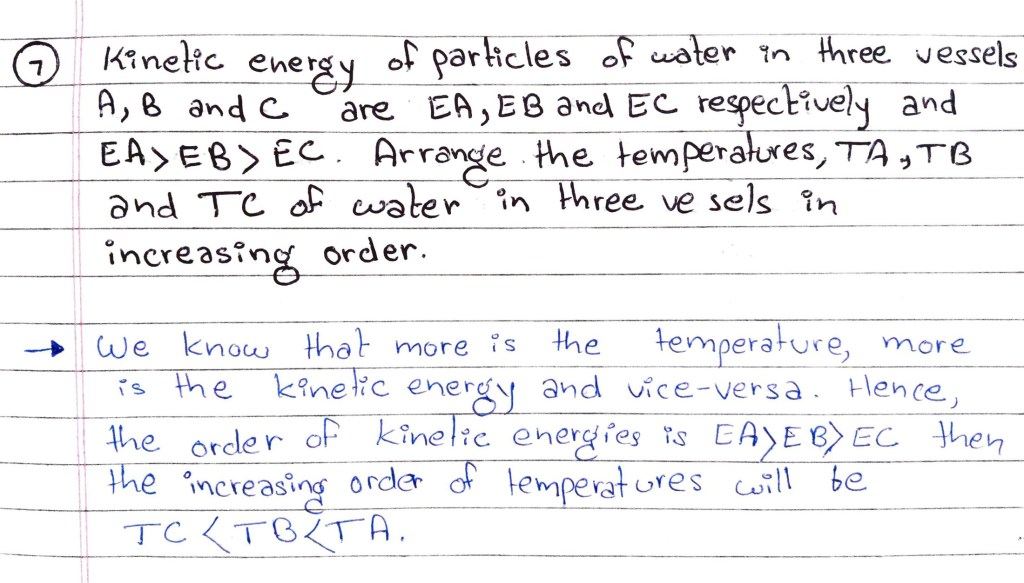 7 Kinetic energy of particles of water in three vessels
A, B and C are EA, EB and EC respectively and
EA>EB>EC. Arrange the temperatures, TA, TB
and TC of water in three ve sels in
increasing order.
→ We know that more is the temperature, more
is the kinetic energy and vice-versa. Hence,
the order of kinetic energies is EA>EB>EC then
the increasing order of temperatures will be
TC<TB<TA.